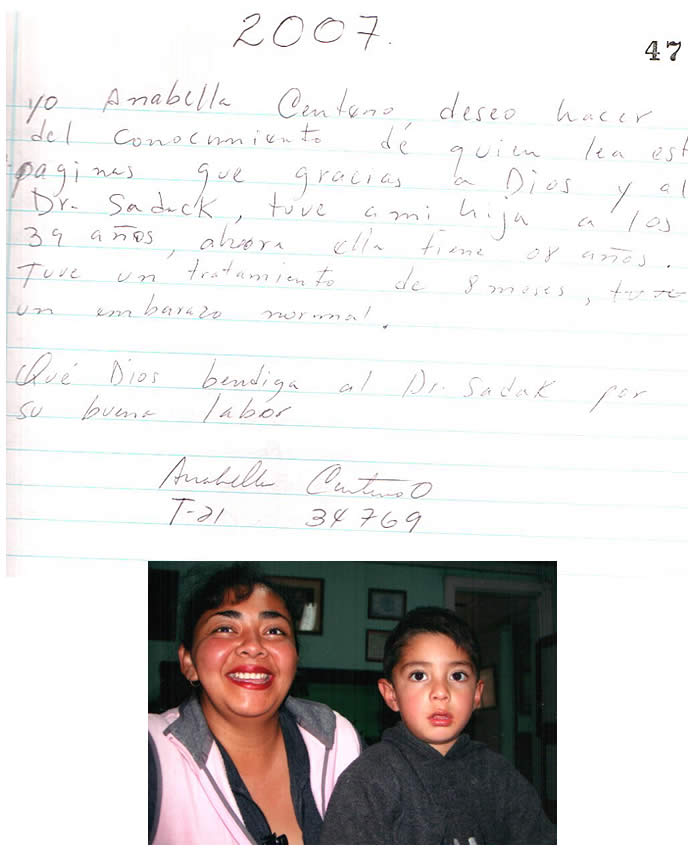 2007.
47
yo Anabella Centeno, deseo hacer
del conocimiento de quien lea est
paginas que gracias a Dios y al
Dr. Saduck, tuve a mi hija a los
39 años, ahora ella tiene 08 años.
Tuve un tratamiento de 8 meses, tuve
un embarazo normal.
Qué Dios bendiga al Dr. Sadak por
su buena labor
Anabella Centeno O
T-21 34769